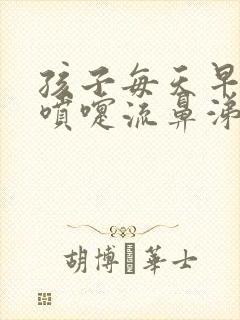 孩子每天早
噴嚏流鼻涕
胡博 華士